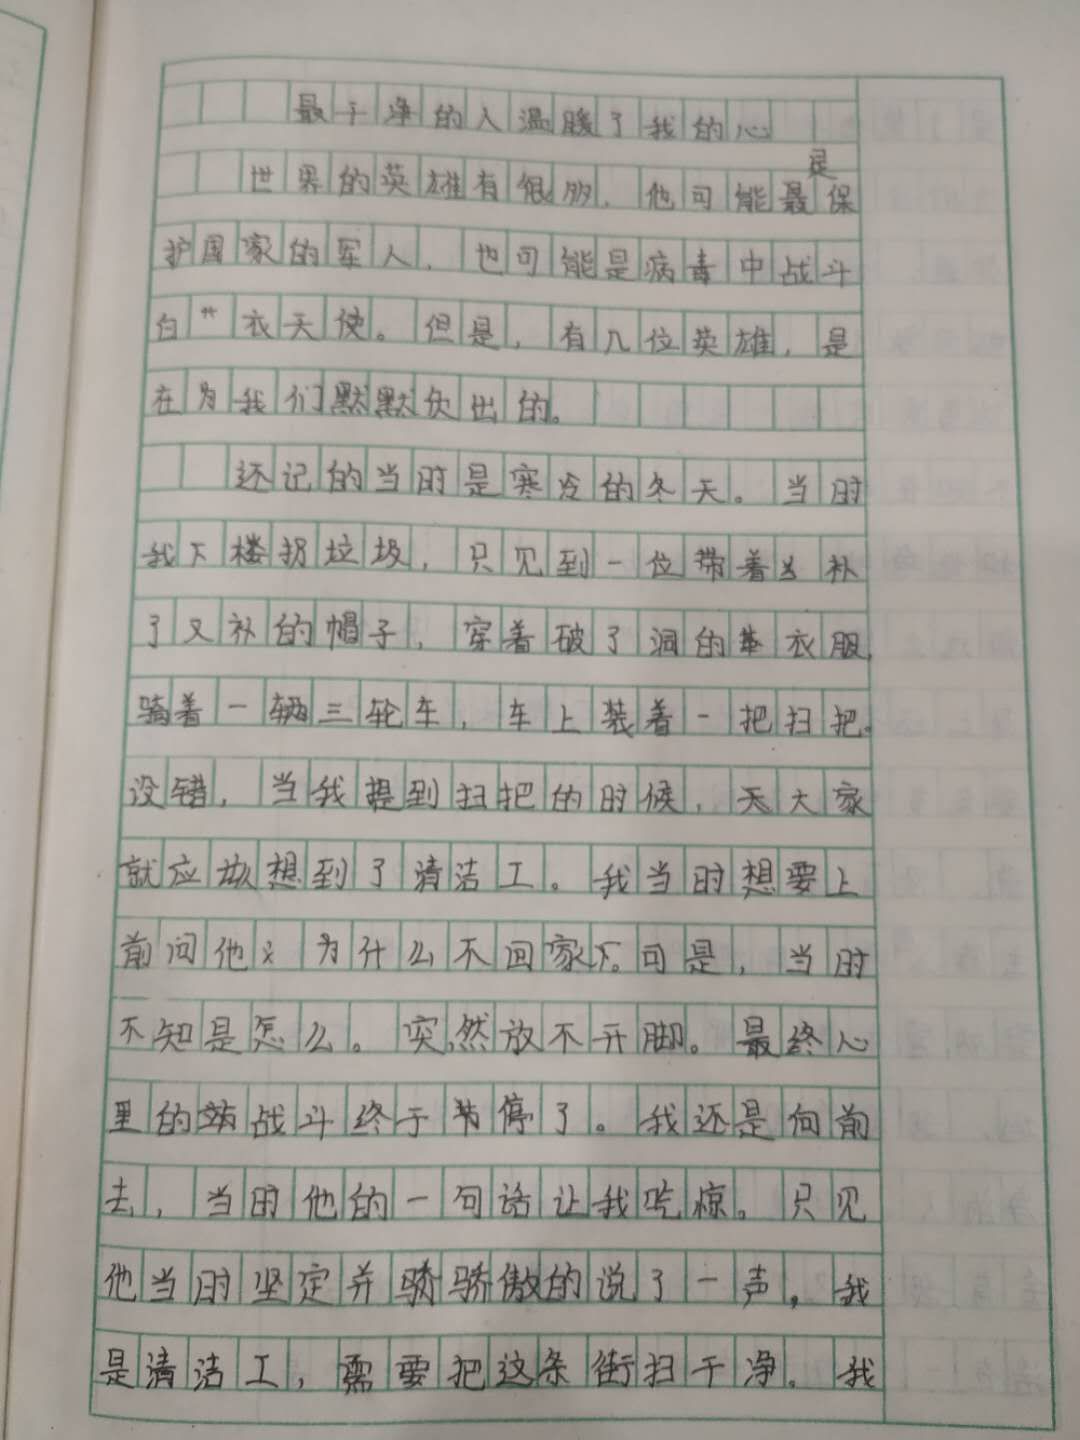 最干净的人温暖了我的心
世界的英雄有很多，他可能是保
护国家的军人，也可能是病毒中战斗
白衣天使。但是，有几位英雄，是
在为我们默默负出的。
还记的当时是寒冷的冬天。当时
我下楼拐垃圾，只见到一位带着补
了又补的帽子，穿着破了洞的衣服，
骑着一辆三轮车，车上装着一把扫把。
没错，当我提到扫把的时候，大家
就应故想到了清洁工。我当时想要上
前问他：为什么不回家。可是，当时
不知是怎么。突然放不开脚。最终心
里的战斗终于停了。我还是向前
去，当时他的一句话让我吃惊。只见
他当时坚定并骄傲的说了一声，我
是清洁工，需要把这条街扫干净。我